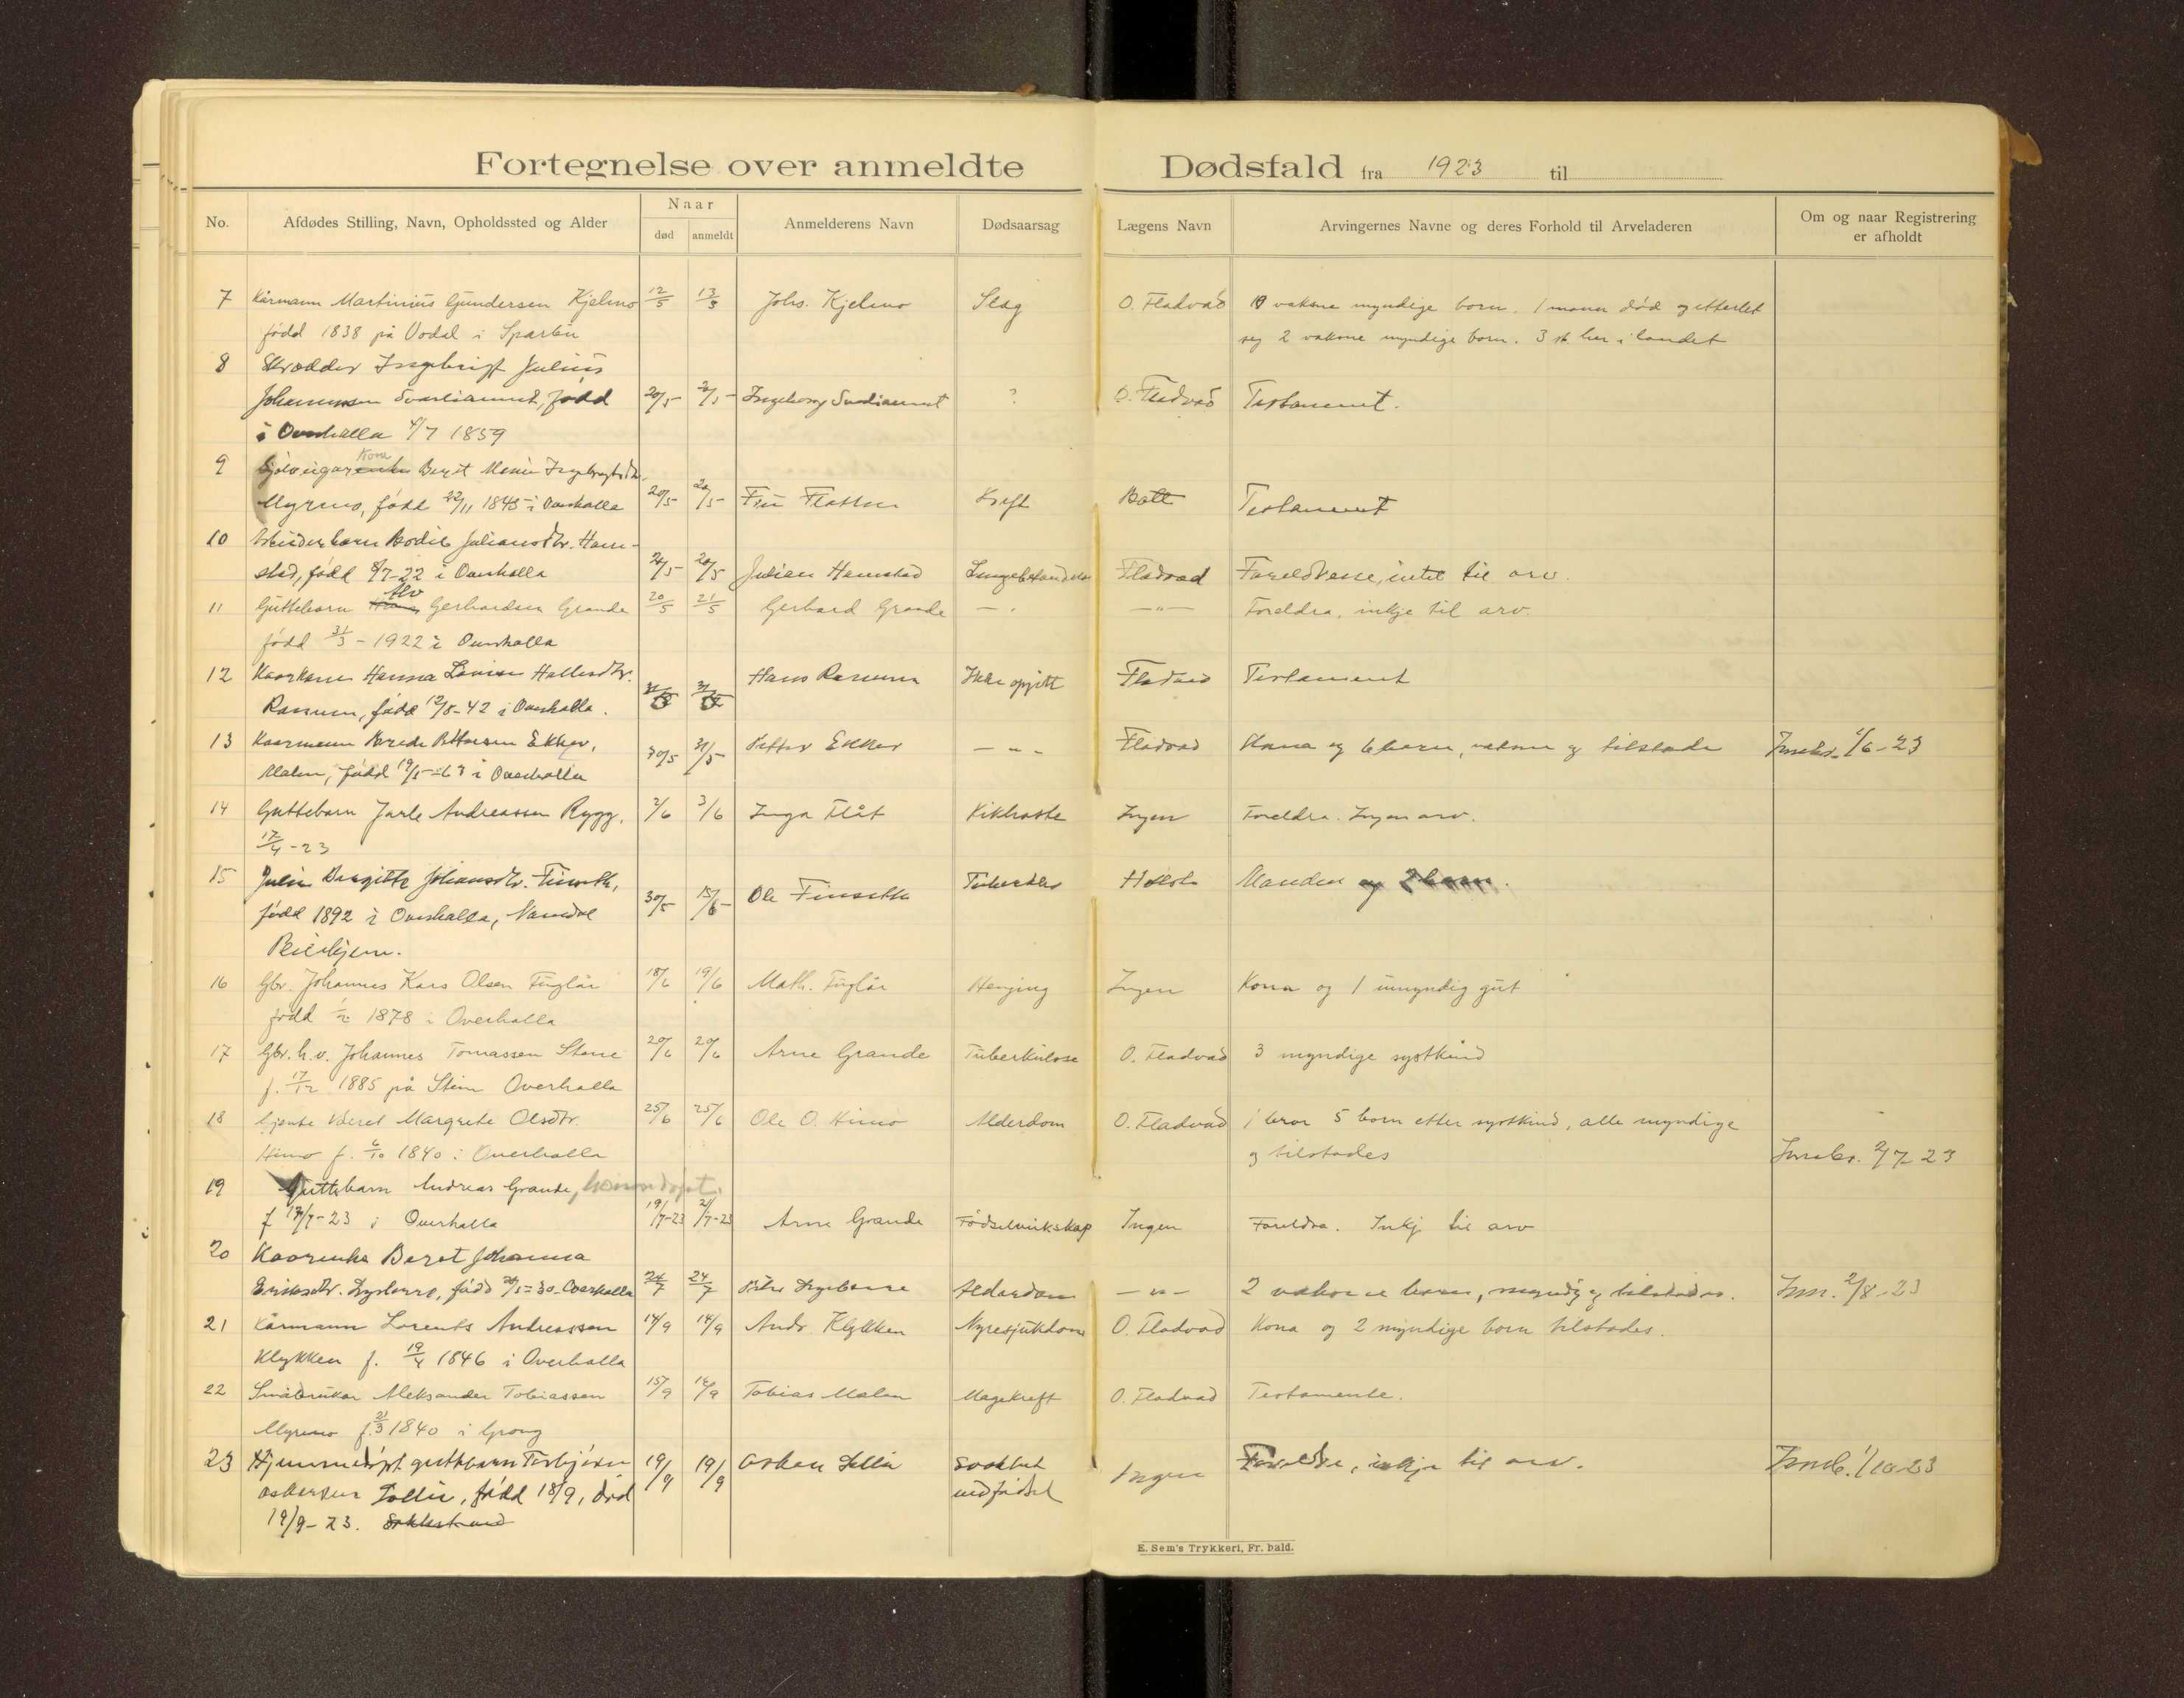 Fortegnelse over anmeldte Dødsfald fra 1923 til
No. Afdødes Stilling, Navn, Opholdssted og Alder Naar Anmelderens Navn Dødsaarsag Lægens Navn Arvingernes Navne og deres Forhold til Arveladeren Om og naar Registrering
død anmeldt er afholdt
7 Kårmann Martinius Gundersen Kjelmo 12/5 13/5 Johs. Kjelmo Slag O. Fladvad 9 vaksne myndige born. 1 mann død og etterlet
fødd 1838 på Vodal i Sparbu seg 2 vaksne myndige born. 3 st. her i landet
8 Skrædder Ingebrigt Julius
Johannessen Svarliaunet, fødd 20/5 Ingeborg Svarliaunet ? O. Fladvad Testament.
i Overhalla 4/7 1859
9 Kona Beret Maria Ingebrigtsdtr.
Myrmo, fødd 22/11 1845 i Overhalla 20/5 20/5 Fru Flatten Kreft Batt Testament
10 Arbeiderbarn Bodil Juliansdtr. Ham-
stad, fødd 8/7-22 i Overhalla 20/5 20/5 Julian Hamstad Lungebetendelse Fladvad Foreldrene, intet til arv.
11 Guttebarn Alv Gerhardsen Grande 20/5 21/5 Gerhard Grande — " — — " — Foreldra, inkje til arv.
fødd 31/3 - 1922 i Overhalla
12 Kaarkone Hanna Lovise Hallesdtr. Hans Ranum Ikke opgitt Fladvad Testament
Ranum, fødd 12/8-42 i Overhalla. 31/5 31/5
13 Kaarmann Brede Pettersen Ekker, 30/5 31/5 Petter Ekker — " — Fladvad Kona og 6 barn, vaksne og tilstade Innbr. 1/6-23
Malm, fødd 19/5-63 i Overhalla
14 Guttebarn Jarle Andreassen Rygg, 2/6 3/6 Inga Flåt Kikhoste Ingen Foreldra. Ingen arv.
17/4 - 23
15 Julie Bergitte Johansdtr. Finseth, Tuberklos Manden og 2 barn.
fødd 1892 i Overhalla, Namdal 30/5 15/6 Ole Finseth
Pleiehjem.
16 Gbr. Johannes Kars Olsen Fuglår 18/6 19/6 Math. Fuglår Henging Ingen Kona og 1 umyndig gut
fødd 1/2 1878 i Overhalla
17 Gbr. h.v. Johannes Tomassen Stene 20/6 20/6 Arne Grande Tuberkulose O. Fladvad 3 myndige systkind
f. 17/12 1885 på Stein Overhalla
18 Gjente Beret Margrete Olsdtr. 25/6 25/6 Ole O. Himo Alderdom O. Fladvad 1 bror 5 born etter systkind, alle myndige
Himo f. 6/10 1840 i Overhalla og tilstades Innbr. 2/7 23
19 Guttebarn Andreas Grande, hjemmedøpt.
f 17/7-23 i Overhalla 19/7-23 21/7-23 Arne Grande Fødselsvikskap Ingen Foreldra. Inkj til arv
20 Kaarenke Beret Johanna
Eriksdtr. Lysberg, fødd 30. Overhalla 24/7 24/7 Alderdom — " — 2 vaksne barn, myndig og tilstades. Inn. 2/8-23
21 Kårmann Lorents Andreassen 14/9 14/9 Andr. Klykken Nyresjukdom O. Fladvad Kona og 2 myndige born tilstades.
Klykken f. 19/4 1846 i Overhalla
22 Småbrukar Aleksander Tobiassen 15/9 16/9 Tobias Malm Magekreft O. Fladvad Testamente.
Myrmo f. 21/3 1840 i Grong
23 Hjemmedøpt guttebarn Torbjørn 19/9 19/9 Asken Lillie Svakhet Ingen Foreldre, inkje til arv. Innb. 1/10-23
Askersen Lillie, fødd 18/9, død ved fødsel
19/9-23.
E. Sem's Trykkeri, Fr.hald.